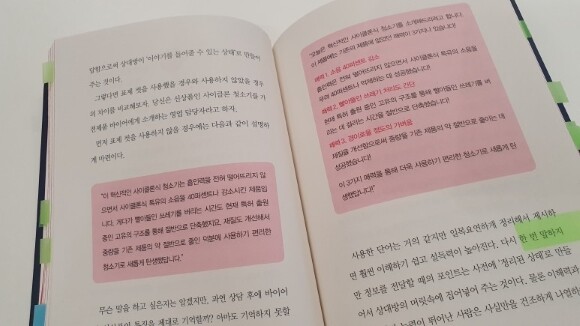 당함으로써 상대방이 '이야기를 들어줄 수 있는 상태'로 만들어
주는 것이다.
그렇다면 표제 셋을 사용했을 경우와 사용하지 않았을 경우
의 차이를 비교해보자. 당신은 신상품인 사이클론 청소기를 가
전제품 바이어에게 소개하는 영업 담당자라고 하자.
먼저 표제 셋을 사용하지 않을 경우에는 다음과 같이 설명하
게 마련이다.
"이 혁신적인 사이클론식 청소기는 흡인력을 전혀 떨어뜨리지 않
으면서 사이클론식 특유의 소음을 40퍼센트나 감소시킨 제품입
니다. 게다가 빨아들인 쓰레기를 버리는 시간도 현재 특허 출원
중인 고유의 구조를 통해 절반으로 단축했지요. 재질도 개선해서
중량을 기존 제품의 약 절반으로 줄인 덕분에 사용하기 편리한
청소기로 새롭게 탄생했답니다."
무슨 말을 하고 싶은지는 알겠지만, 과연 상담 후에 바이어
이 제대로 기억할까? 아마도 기억하지 못할
"오늘은 혁신적인 사이클론식 청소기를 소개해드리려고 합니다.
이 제품에는 기존의 제품에 없었던 매력이 3가지나 있습니다!
매력1. 소음 40퍼센트 감소
흡인력은 전혀 떨어뜨리지 않으면서 사이클론식 특유의 소음을
무려 40퍼센트나 억제하는 데 성공했습니다!
매력2. 빨아들인 쓰레기 버리는 시간도 절반
현재 특허 출원 중인 고유의 구조를 통해 빨아들인 쓰레기를 버
리는 데 걸리는 시간을 절반으로 단축했습니다!
매력3. 경이로울 정도의 가벼움
재질을 개선함으로써 중량을 기존 제품의 약 절반으로 줄이는 데
성공했습니다!
이 3가지 매력을 통해 더욱 사용하기 편리한 청소기로 새롭게 탄
생했답니다!"
사용한 단어는 거의 같지만 일목요연하게 정리해서 제시하
면 훨씬 이해하기 쉽고 설득력이 높아진다. 다시 한 번 말하지
만 정보를 전달할 때의 포인트는 사전에 '정리된 상태'로 만들
어서 상대방의 머릿속에 집어넣어 주는 것이다. 물론 이해력과
능력이 뛰어난 사람은 사실만을 건조하게 나열하